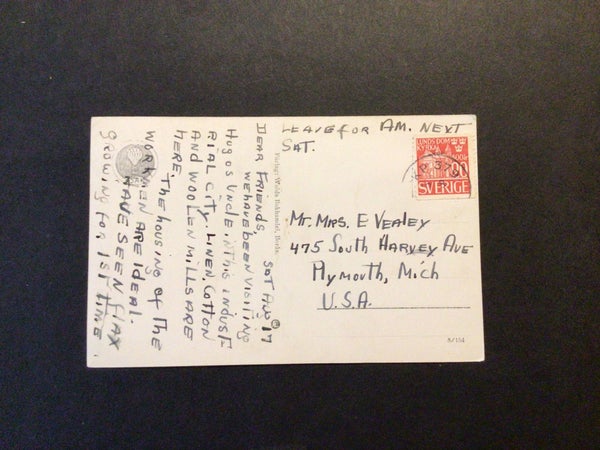 Dear Friends, Sat Aug 17
We have been visiting
Hugos Uncle. in this indust-
rial city. Linen Cotton
and woolen mills are
here.
The housing of the
workmen are ideal.
Have seen flax
growing for 1st time.
Leave for Am. next
Sat.
LUNDS DOM
KYRKA
SVERIGE
Mr. Mrs. E Vealey
475 South Harvey Ave
Plymouth, Mich
U.S.A.
8/134